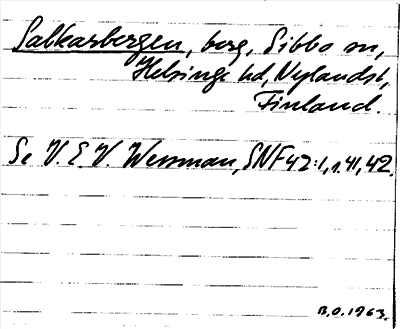 Labkarbergen, berg, Sibbo sn,
Helsinge hd, Nylands l,
Finland.
Se V. E. V. Wessman, SNF 42:1, s. 41, 42.
B.O. 1963.